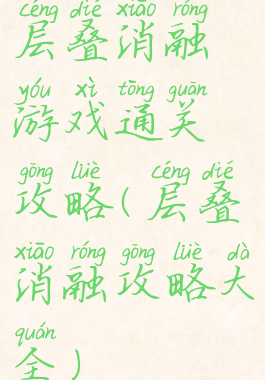 céng dié xiāo róng
层叠消融
yóu xì tōng guān
游戏通关
gōng lüè céng dié
攻略(层叠
xiāo róng gōng lüè dà
消融攻略大
quán
全)